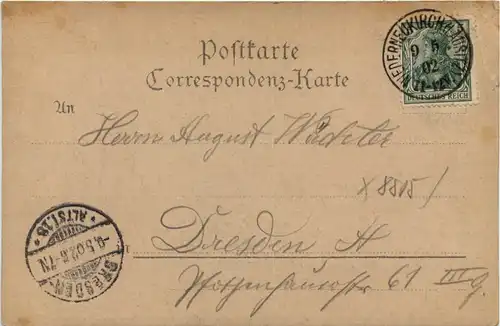 Postkarte
Correspondenz-Karte
NIEDERNEUKIRCH
9 5
02
11-12V
DEUTSCHES REICH
An
Herrn August Wächter
X 8815/
in Dresden A
Pfotenhauerstr 61 III
DRESDEN
ALTST. 16